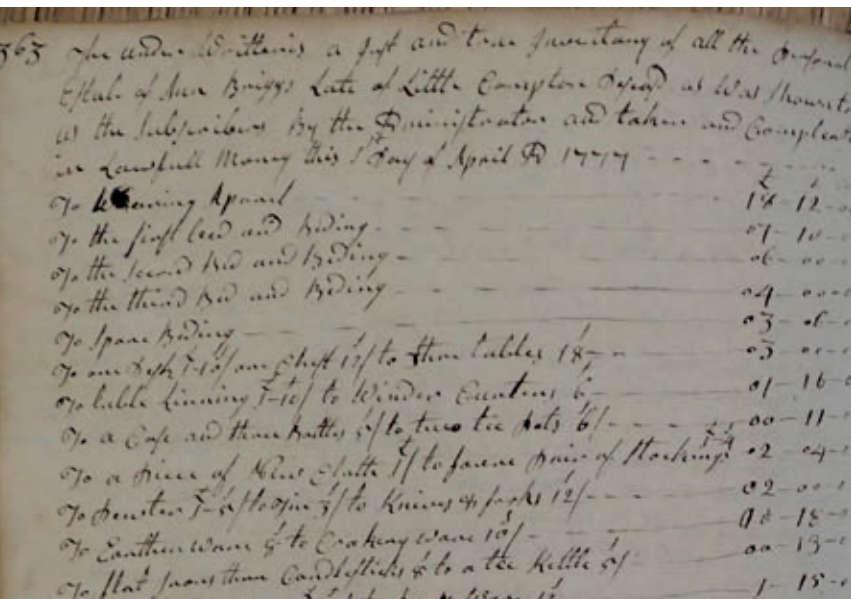 363 The under Writtenis a Just and true Inventary of all the personal
Estate of Briggs Late of Little Compton Deceasd as Was Shown to
us the Subscribers by the Administrator and taken and Compleated
in Lawfull Money this 1st Day of April AD 1777
To Wearing Aparil 18 - 12
To the first bed and Beding 07 - 10
To the Second Bed and Beding 06 - 00
To the third Bed and Beding 04 - 00
To Spare Beding 03 - 06
To one Desk one Chest 12/ to three tables 18 03 - 00
To table Linning to Winder Curtens 6 01 - 16
To a Case and three Bottles 5/ to two tee pots 6/ 00 - 11
To a piece of New Cloth to pair of Stockings 02 - 04
To to Knives & forks 12/ 02 - 00
To Earthen ware to Cooking ware 18
To flat Irons three Candlesticks 8 to a tee Kettle 5/ 00 - 13
1 - 15